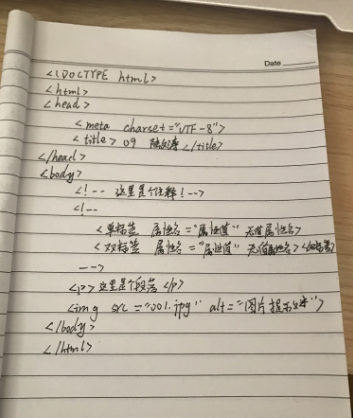 Date
<!DOCTYPE html>
<html>
<head>
<meta charset="UTF-8">
<title> 09 </title>
</head>
<body>
<!-- 这里是个注释! -->
<!--
<单标签 属性名="属性值" 无值属性名>
<双标签 属性名="属性值" 无值属性名></双标签>
-->
<p> 这里是个段落 </p>
<img src="001.jpg" alt="图片提示文本">
</body>
</html>